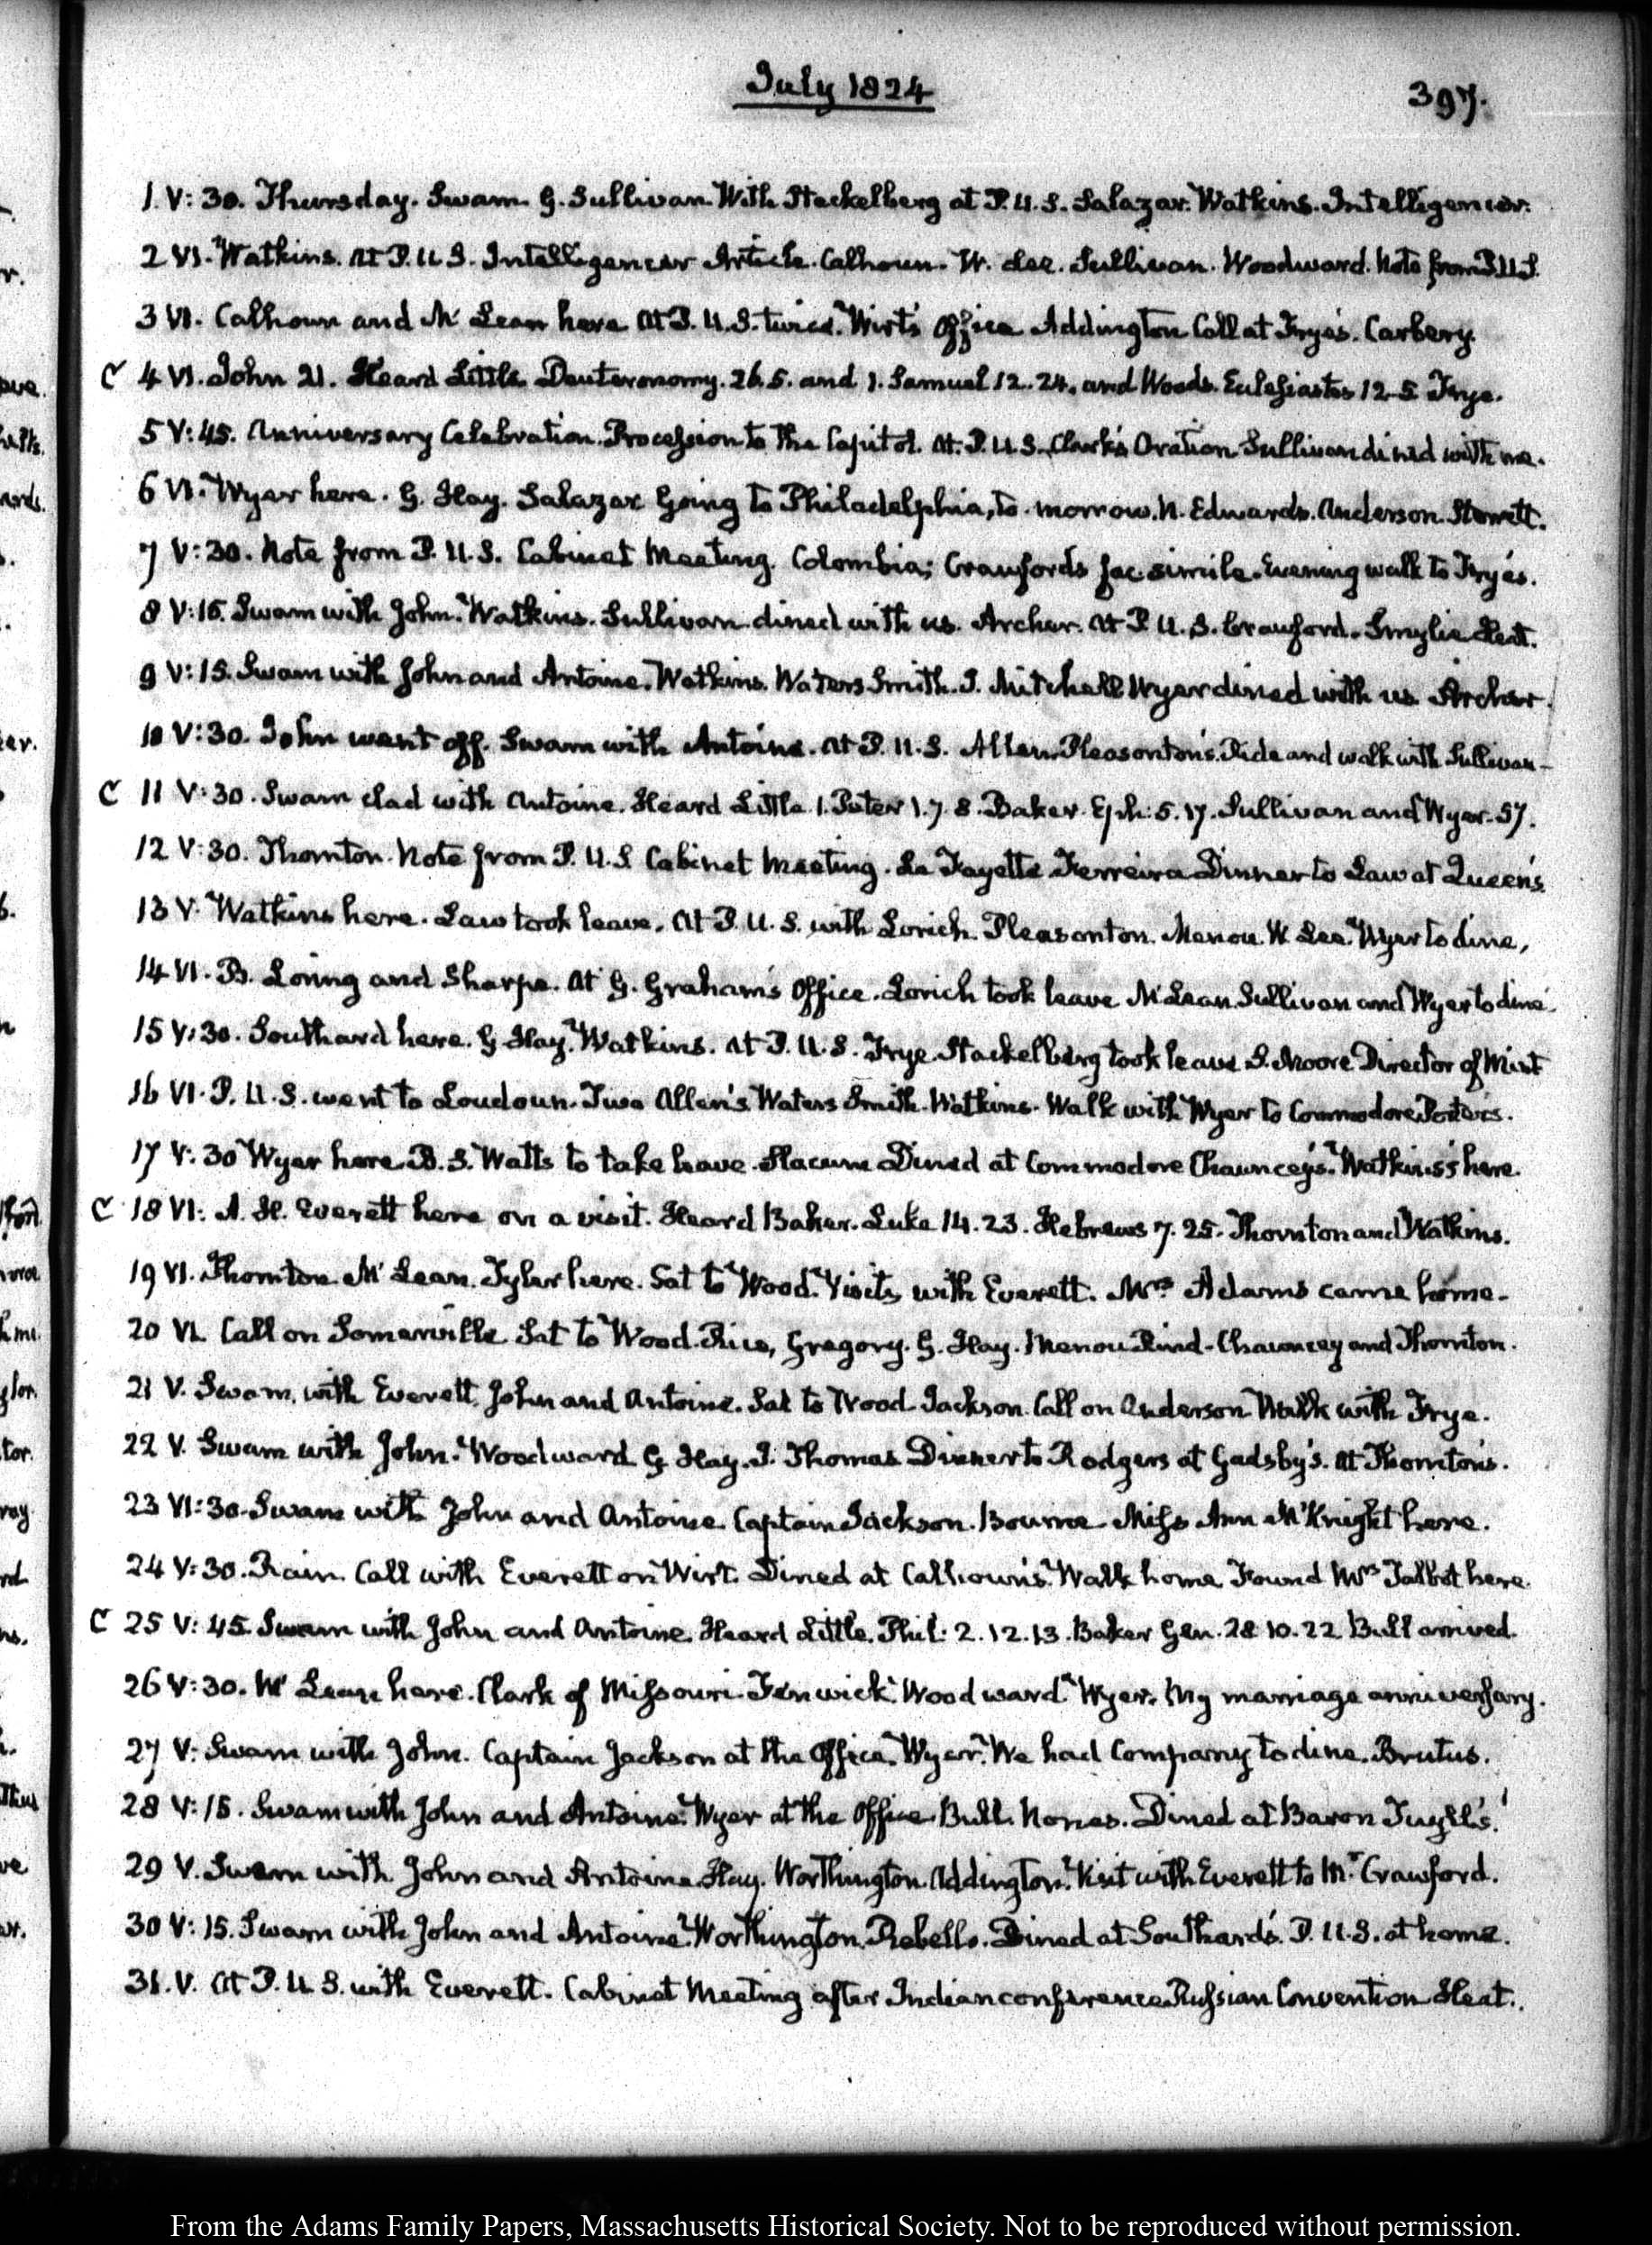 July 1824
397.
1. V: 30. Thursday. Swam. G. Sullivan. With Stackelberg at P.U.S. Salazar. Watkins. Intelligencer.
2 VI. Watkins. At P.U.S. Intelligencer Article. Calhoun. W. Lee. Sullivan. Woodward. Note from P.U.S.
3 VI. Calhoun and Mc Lean here. At P.U.S. twice. Wirt's Office Addington Call at Frye's. Carbery.
C 4 VI. John 21. Heard Little. Deuteronomy. 26.5. and 1. Samuel 12.24. and Woods. Eclesiastes 12.5 Frye.
5 V: 45. Anniversary Celebration. Procession to the Capitol. At P.U.S. Clark's Oration Sullivan dined with me.
6 VI. Wyer here. G. Hay. Salazar Going to Philadelphia, to-morrow. N. Edwards. Anderson.
7 V: 30. Note from P.U.S. Cabinet Meeting. Colombia; Crawford's fac simile. Evening walk to Frye's.
8 V: 15. Swam with John. Watkins. Sullivan dined with us. Archer. At P.U.S. Crawford. Smylie Heat.
9 V: 15. Swam with John and Antoine. Watkins. Waters Smith. J. Mitchell Wyer dined with us. Archer.
10 V: 30. John went off. Swam with Antoine. At P.U.S. Allen. Pleasonton's. Ride and walk with Sullivan-
C 11 V: 30. Swam clad with Antoine. Heard Little 1. Peter 1.7.8. Baker. Eph: 5.17. Sullivan and Wyer. 57.
12 V: 30. Thornton. Note from P.U.S Cabinet Meeting. La Fayette Ferreira Dinner to Law at Queen's
13 V. Watkins here. Law took leave. At P.U.S. with Lorich. Pleasonton. Menou. W. Lee. Wyer to dine,
14 VI. B. Loring and Sharpe. At G. Graham's Office. Lorich took leave McLean. Sullivan and Wyer to dine.
15 V: 30. Southard here. G Hay. Watkins. At P.U.S. Frye. Stackelberg took leave S. Moore Director of Mint
16 VI. P.U.S. went to Loudoun. Two Allen's Waters Smith. Watkins. Walk with Wyer to Commodore Porter's.
17 V: 30 Wyer here. B. S. Watts to take leave. Slacum Dined at Commodore Chauncey's. Watkins's here.
C 18 VI: A. H. Everett here on a visit. Heard Baker. Luke 14.23. Hebrews 7.25. Thornton and Watkins.
19 VI. Thornton. Mc Lean. Tyler here. Sat to Wood. Visits with Everett. Mrs Adams came home.
20 VI. Call on Somerville. Sat to Wood. Rice, Gregory. G. Hay. Menou Rind. Chauncey and Thornton.
21 V. Swam, with Everett. John and Antoine. Sat to Wood. Jackson. Call on Anderson Walk with Frye.
22 V. Swam with John. Woodward G. Hay. J. Thomas Dinner to Rodgers at Gadsby's. At Thornton's.
23 VI: 30. Swam with John and Antoine. Captain Jackson. Bourne Miss Ann McKnight here.
24 V: 30. Rain. Call with Everett on Wirt. Dined at Calhoun's. Walk home Found Mrs Talbot here.
C 25 V: 45. Swam with John and Antoine. Heard Little. Phil: 2.12.13. Baker Gen. 28 10.22. Bull arrived.
26 V: 30. Mc Lean here. Clark of Missouri. Fenwick. Woodward. Wyer. My marriage anniversary.
27 V: Swam with John. Captain Jackson at the Office. Wyer. We had Company to dine. Brutus.
28 V: 15. Swam with John and Antoine. Wyer at the Office. Bull. Nones. Dined at Baron Tuyll's.
29 V. Swam with John and Antoine. Hay. Worthington. Addington. Visit with Everett to Mr Crawford.
30 V: 15. Swam with John and Antoine Worthington. Rebello. Dined at Southard's. P.U.S. at home.
31. V. At P.U.S. with Everett. Cabinet Meeting after Indian conference Russian Convention Heat.
From the Adams Family Papers, Massachusetts Historical Society. Not to be reproduced without permission.